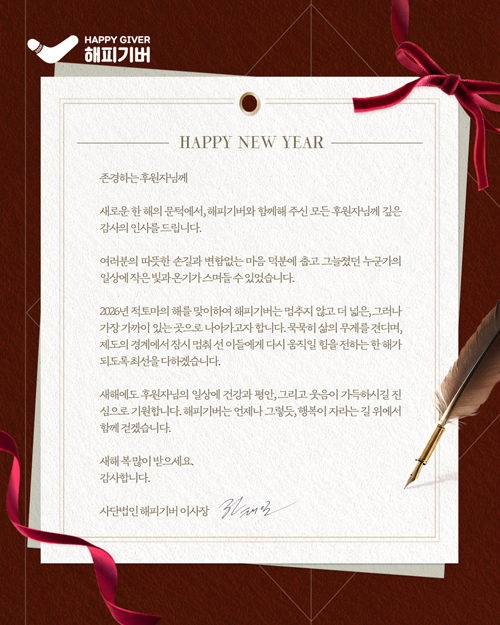 HAPPY GIVER
해피기버
HAPPY NEW YEAR
존경하는 후원자님께
새로운 한 해의 문턱에서, 해피기버와 함께해 주신 모든 후원자님께 깊은
감사의 인사를 드립니다.
여러분의 따뜻한 손길과 변함없는 마음 덕분에 춥고 그늘졌던 누군가의
일상에 작은 빛과 온기가 스며들 수 있었습니다.
2026년 적토마의 해를 맞이하여 해피기버는 멈추지 않고 더 넓은, 그러나
가장 가까이 있는 곳으로 나아가고자 합니다. 묵묵히 삶의 무게를 견디며,
제도의 경계에서 잠시 멈춰 선 이들에게 다시 움직일 힘을 전하는 한 해가
되도록 최선을 다하겠습니다.
새해에도 후원자님의 일상에 건강과 평안, 그리고 웃음이 가득하시길 진
심으로 기원합니다. 해피기버는 언제나 그렇듯, 행복이 자라는 길 위에서
함께 걷겠습니다.
새해 복 많이 받으세요.
감사합니다.
사단법인 해피기버 이사장